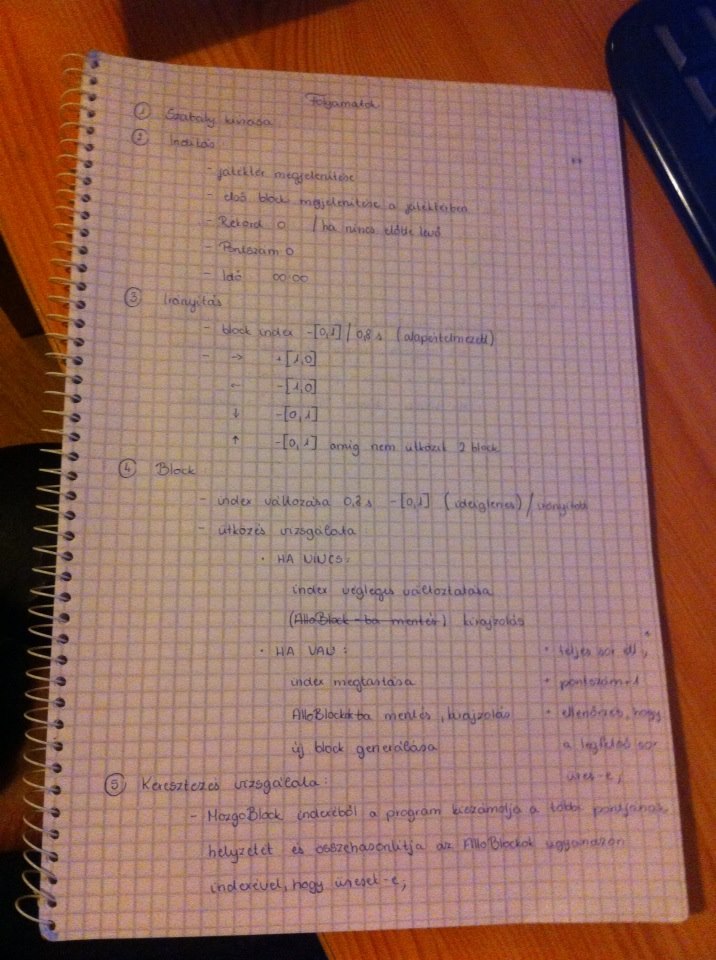 Folyamatok
① Szabály kiírása
② Indítás
- játéktér megjelenítése
- első block megjelenítése a játéktérben
- Rekord 0 / ha nincs előtte levő
- Pontszám 0
- Idő 00:00
③ Irányítás
- block index -[0,1] / 0,8 s (alapértelmezett)
- → +[1,0]
← -[1,0]
↓ -[0,1]
↑ -[0,1] amíg nem ütközik 2 block
④ Block
- index változása 0,8 s -[0,1] (ideiglenes) / irányított
- ütközés vizsgálata:
• HA NINCS:
index végleges változtatása
(AlloBlock-ba mentés) kirajzolás
• HA VAN:
index megtartása
AlloBlockokba mentés, kirajzolás
új block generálása
• teljes sor
• pontszám+1
• ellenőrzés, hogy
a legfelső sor
üres-e;
⑤ Keresztezés vizsgálata:
- MozgoBlock indexéből a program kiszámolja a többi pontjának
helyzetét és összehasonlítja az AlloBlockok ugyanazon
indexével, hogy üresek-e;